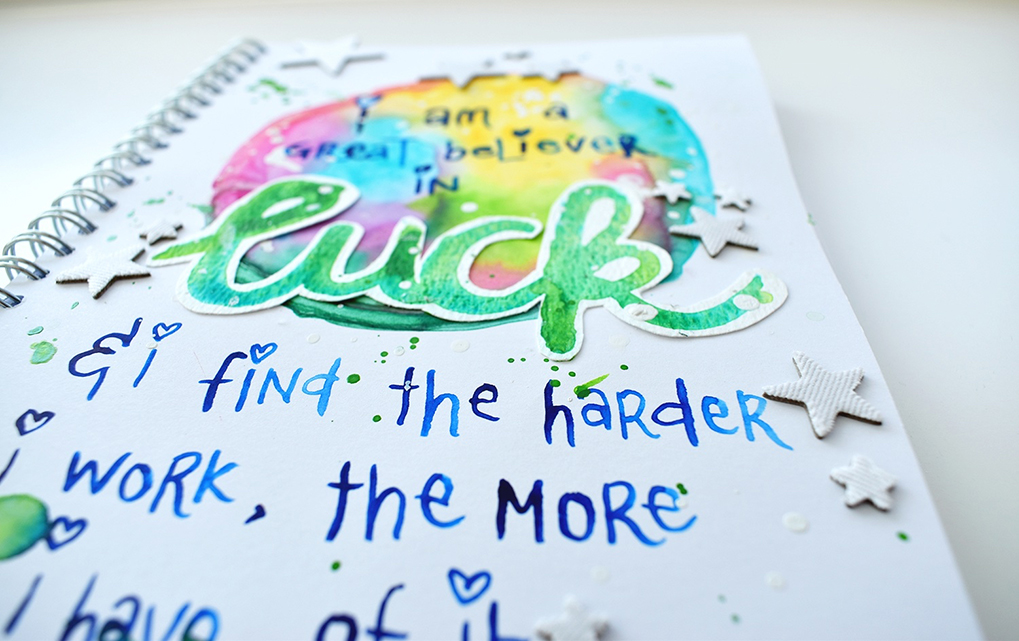 i am a
GREAT beLiEVER
iN
luck
& i fiNd the haRdER
i WORK, the MORe
I have of it